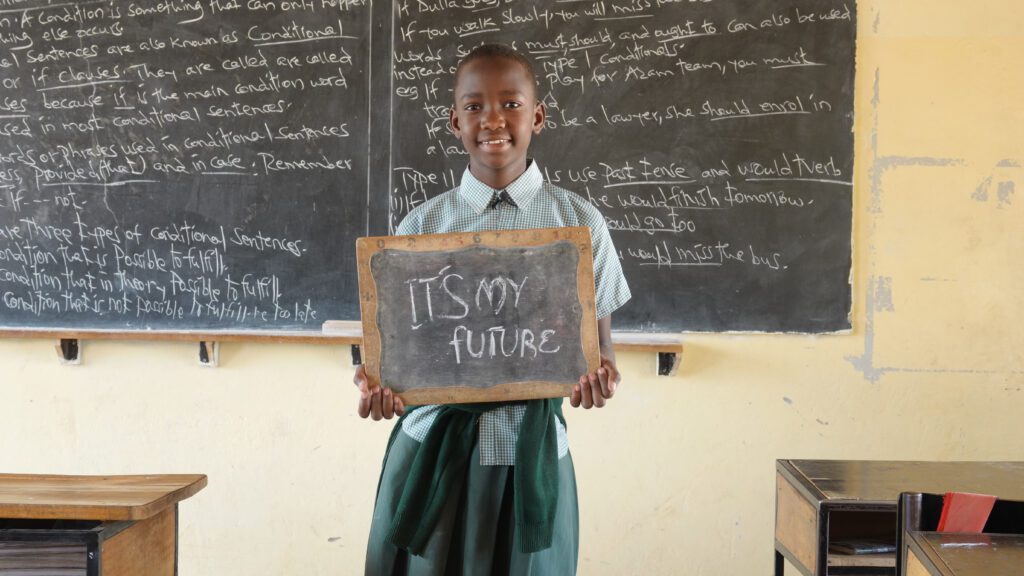 A condition is something that can only happen
thing else occurs
sentences are also known as Conditional
if clauses. They are called are called
because if is the main condition word
used in most conditional sentences.
words or Phrases used in conditional sentences
Provided (that) and in case. Remember
If --- not.
are Three types of Conditional Sentences.
condition that is Possible to fulfill.
condition that in theory Possible to fulfill
condition that is not possible to fulfill
too late
If Dulla
If you walk slowly, you will miss
must, should and ought to can also be used
instead
Type 1 Conditionals.
eg If
play for Azam team, you must
If
to be a lawyer, she should enrol in
a law
Type II
use Past tense and would + verb
he would finish tomorrow.
would go too
would miss the bus.
IT'S MY
FUTURE